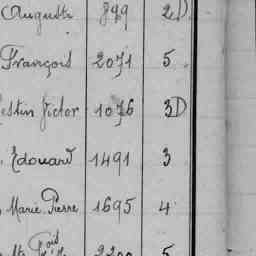 Auguste 899 2D
François 2071 5
estin Victor 1076 3D
Edouard 1491 3
Marie Pierre 1695 4
5